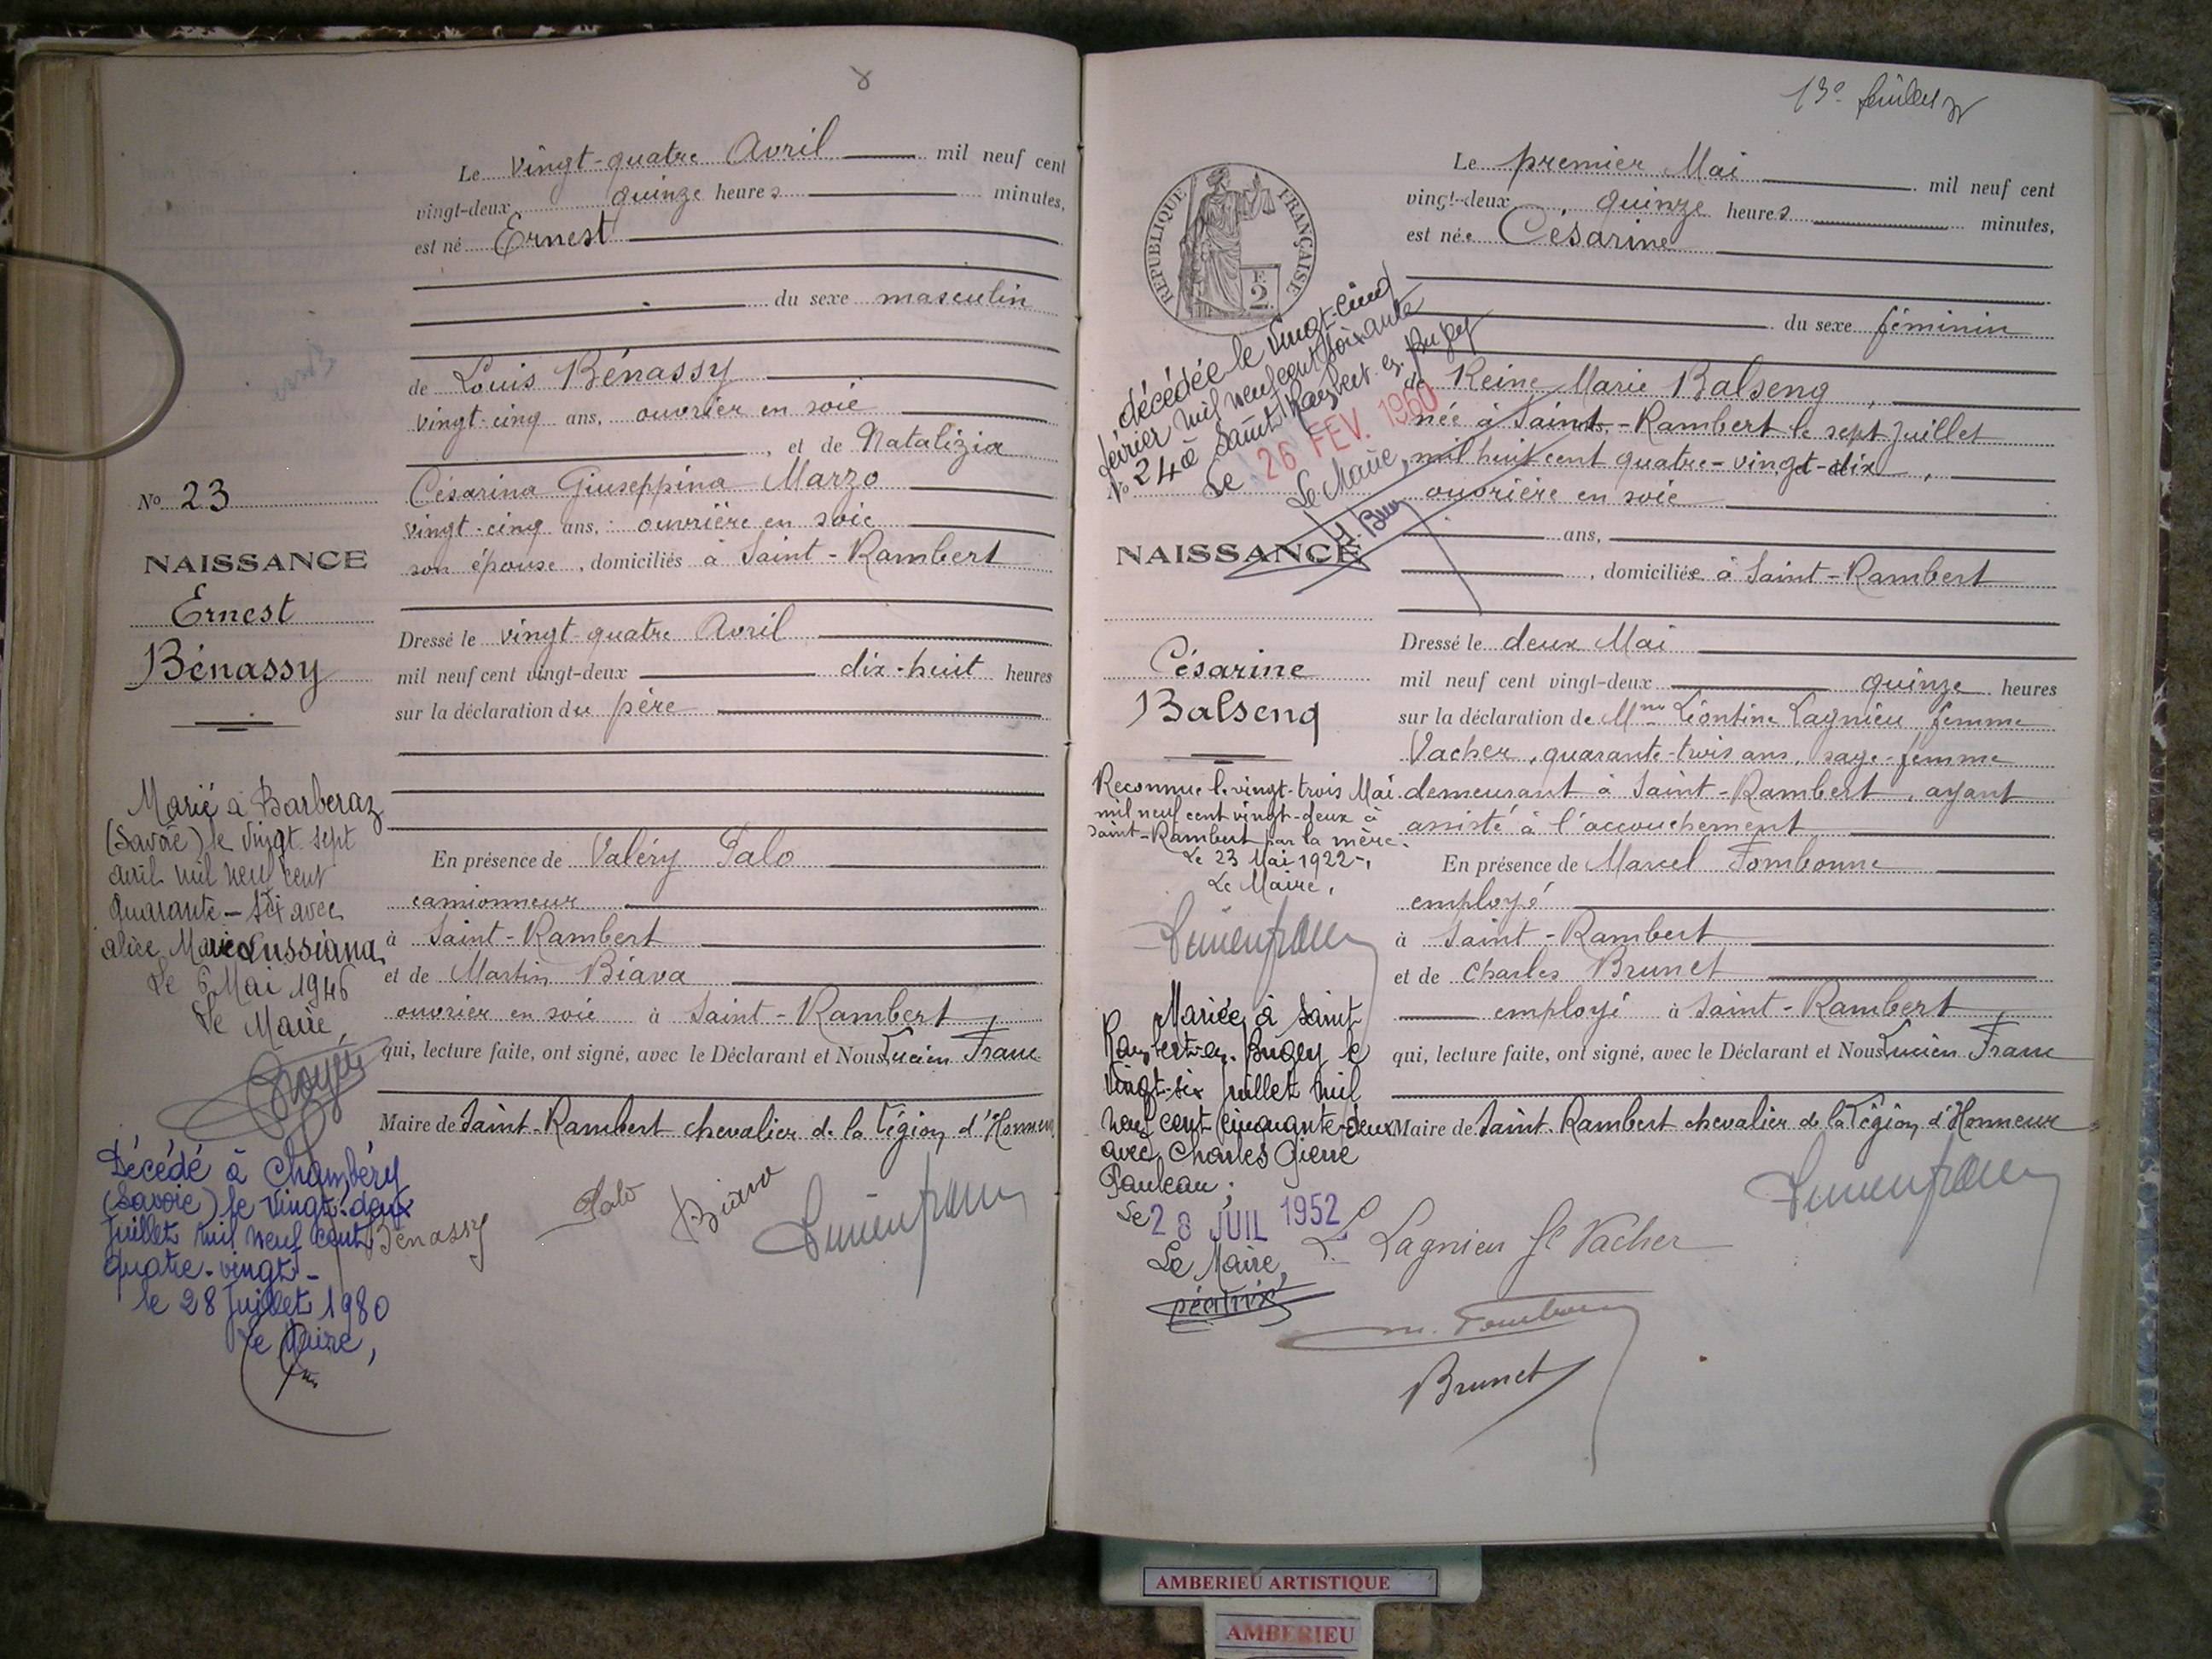 8
Le vingt-quatre Avril mil neuf cent
vingt-deux quinze heures minutes,
est né Ernest
du sexe masculin
de Louis Bénassy
vingt-cinq ans, ouvrier en soie
, et de Natalizia
Césarina Giuseppina Marzo
vingt-cinq ans, ouvrière en soie
son épouse, domiciliés à Saint-Rambert
Dressé le vingt-quatre Avril
mil neuf cent vingt-deux dix-huit heures
sur la déclaration du père
En présence de Valéry Palo
camionneur
à Saint-Rambert
et de Martin Biava
ouvrier en soie à Saint-Rambert
qui, lecture faite, ont signé, avec le Déclarant et Nous Lucien Franc
Maire de Saint-Rambert chevalier de la Légion d'Honneur
Bénassy Palo Biava
No 23
NAISSANCE
Ernest
Bénassy
Marié à Barberaz
(Savoie) le vingt sept
avril mil neuf cent
quarante-six avec
Alice Marie Lussiana
Le 6 Mai 1946
Le Maire,
Décédé à Chambéry
(Savoie) le vingt-deux
Juillet mil neuf cent
quatre-vingt-
le 28 Juillet 1980
Le Maire,
13e feuillet
REPUBLIQUE FRANÇAISE
2
Le premier Mai mil neuf cent
vingt-deux, quinze heures minutes,
est née Césarine
du sexe féminin
de Reine Marie Balseng,
née à Saint-Rambert le sept juillet
mil huit cent quatre-vingt-dix,
ouvrière en soie
ans,
, domiciliée à Saint-Rambert
Dressé le deux Mai
mil neuf cent vingt-deux quinze heures
sur la déclaration de Mme Léontine Lagnieu, femme
Vacher, quarante-trois ans, sage-femme
demeurant à Saint-Rambert, ayant
assisté à l'accouchement
En présence de Marcel Fombonne
employé
à Saint-Rambert
et de Charles Brunet
employé à Saint-Rambert
qui, lecture faite, ont signé, avec le Déclarant et Nous Lucien Franc
Maire de Saint-Rambert chevalier de la Légion d'Honneur
L. Lagnieu fe Vacher
Brunet
décédée le vingt-cinq
février mil neuf cent soixante
à Saint Rambert-en-Bugey
Le 26 FEV. 1960
Le Maire,
No 24
NAISSANCE
Césarine
Balseng
Reconnue le vingt-trois Mai
mil neuf cent vingt-deux à
Saint-Rambert par la mère.
Le 23 Mai 1922
Le Maire,
Mariée à Saint
Rambert-en-Bugey le
vingt-six juillet mil
neuf cent cinquante-deux
avec Charles Pierre
Pauleau;
Le 28 JUIL 1952
Le Maire,
AMBERIEU ARTISTIQUE
AMBERIEU